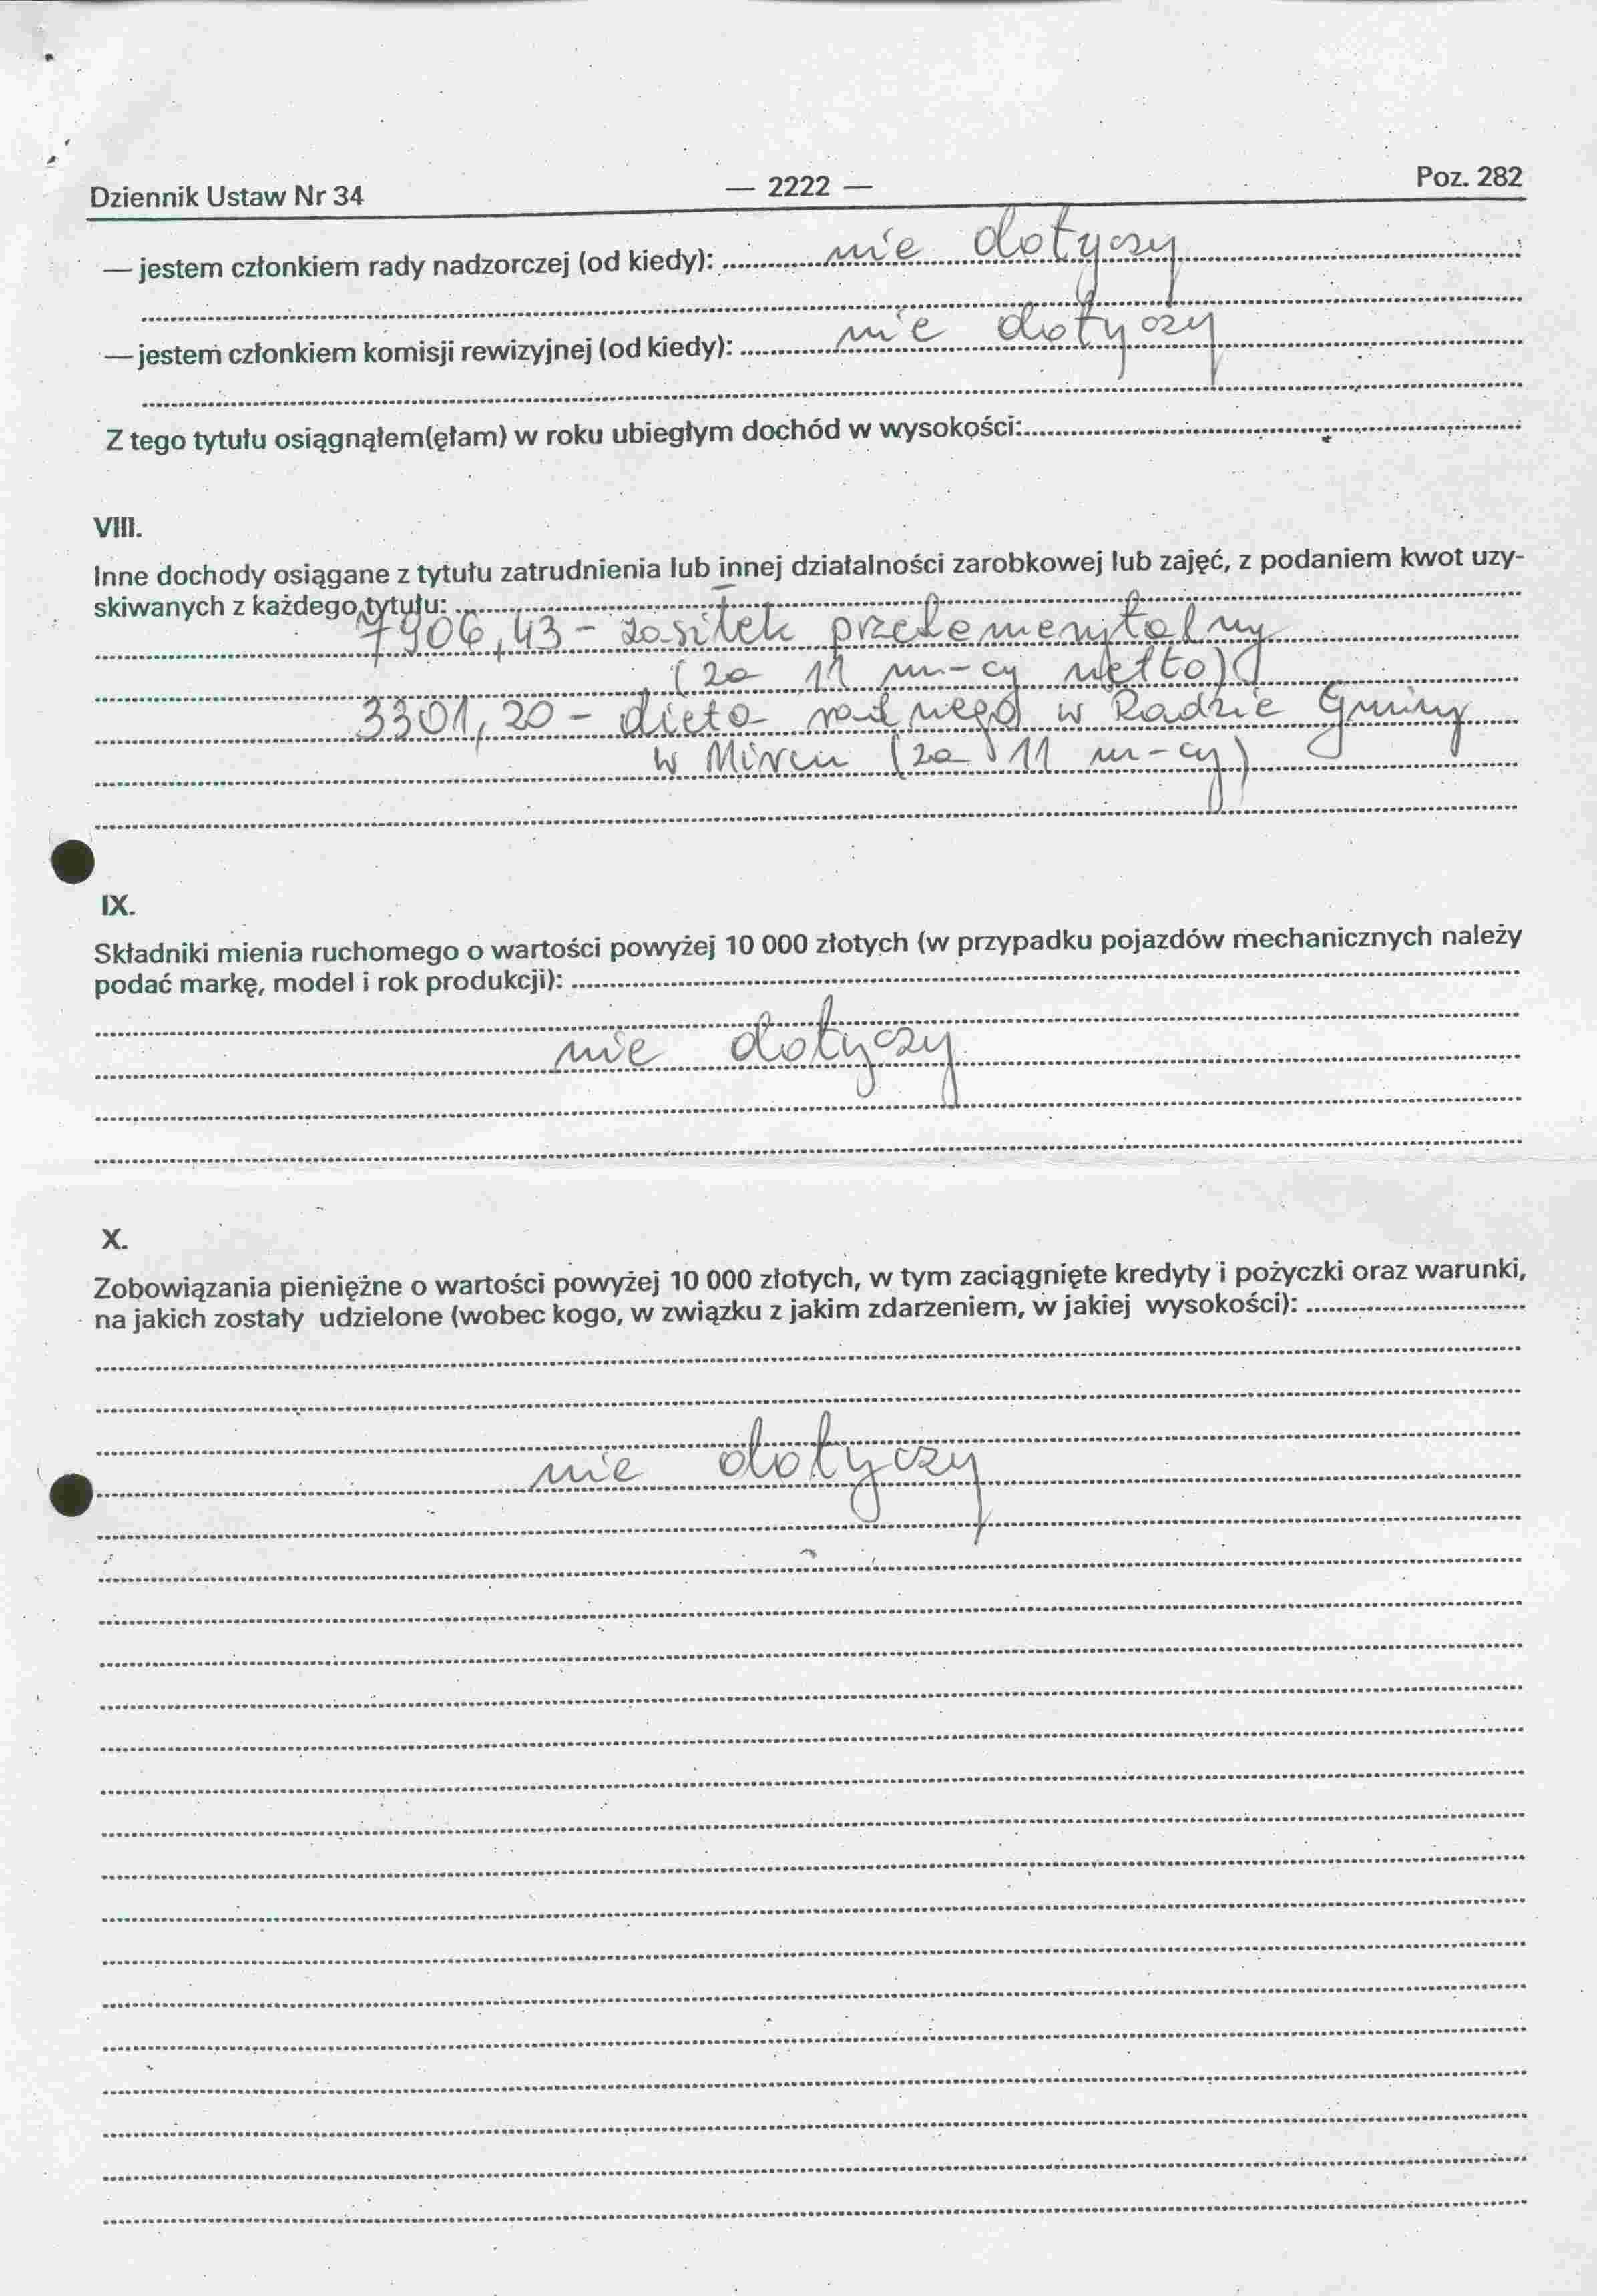 Dziennik Ustaw Nr 34 — 2222 — Poz. 282
— jestem członkiem rady nadzorczej (od kiedy): nie dotyczy
— jestem członkiem komisji rewizyjnej (od kiedy): nie dotyczy
Z tego tytułu osiągnąłem(ęłam) w roku ubiegłym dochód w wysokości:
VIII.
Inne dochody osiągane z tytułu zatrudnienia lub innej działalności zarobkowej lub zajęć, z podaniem kwot uzy-
skiwanych z każdego tytułu:
7906,43 – zasiłek przedemerytalny
(za 11 m-cy netto)
3301,20 – dieta radnego w Radzie Gminy
w Mircu (za 11 m-cy)
IX.
Składniki mienia ruchomego o wartości powyżej 10 000 złotych (w przypadku pojazdów mechanicznych należy
podać markę, model i rok produkcji):
nie dotyczy
X.
Zobowiązania pieniężne o wartości powyżej 10 000 złotych, w tym zaciągnięte kredyty i pożyczki oraz warunki,
na jakich zostały udzielone (wobec kogo, w związku z jakim zdarzeniem, w jakiej wysokości):
nie dotyczy